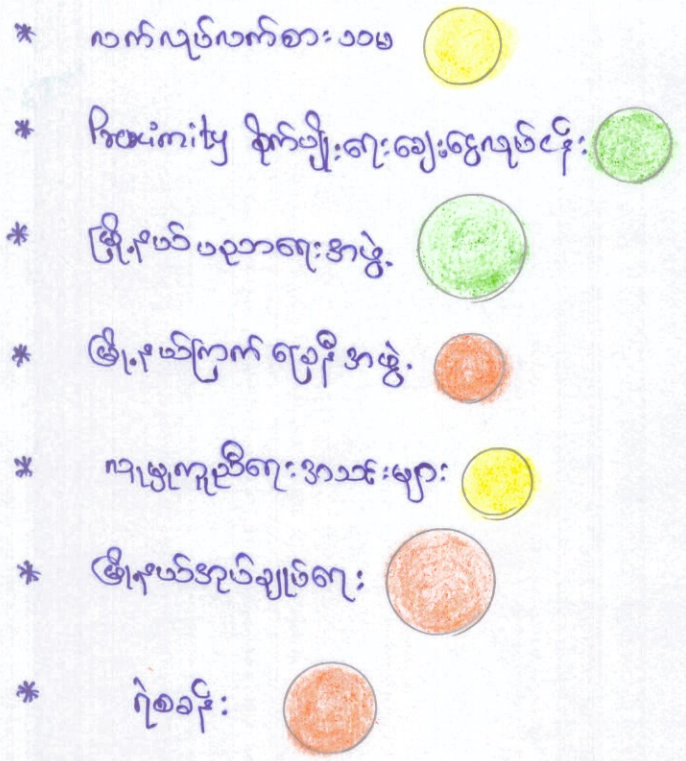 * လက်လုပ်လက်စား ၁၁မ
* Proximity စိုက်ပျိုးရေးချေးငွေလုပ်ငန်း
* မြို့နယ် ပညာရေးအဖွဲ့
* မြို့နယ်ကြက်ခြေနီ အဖွဲ့
* လူမှုကူညီရေးအသင်းများ
* မြို့နယ်အုပ်ချုပ်ရေး
* ရဲစခန်း